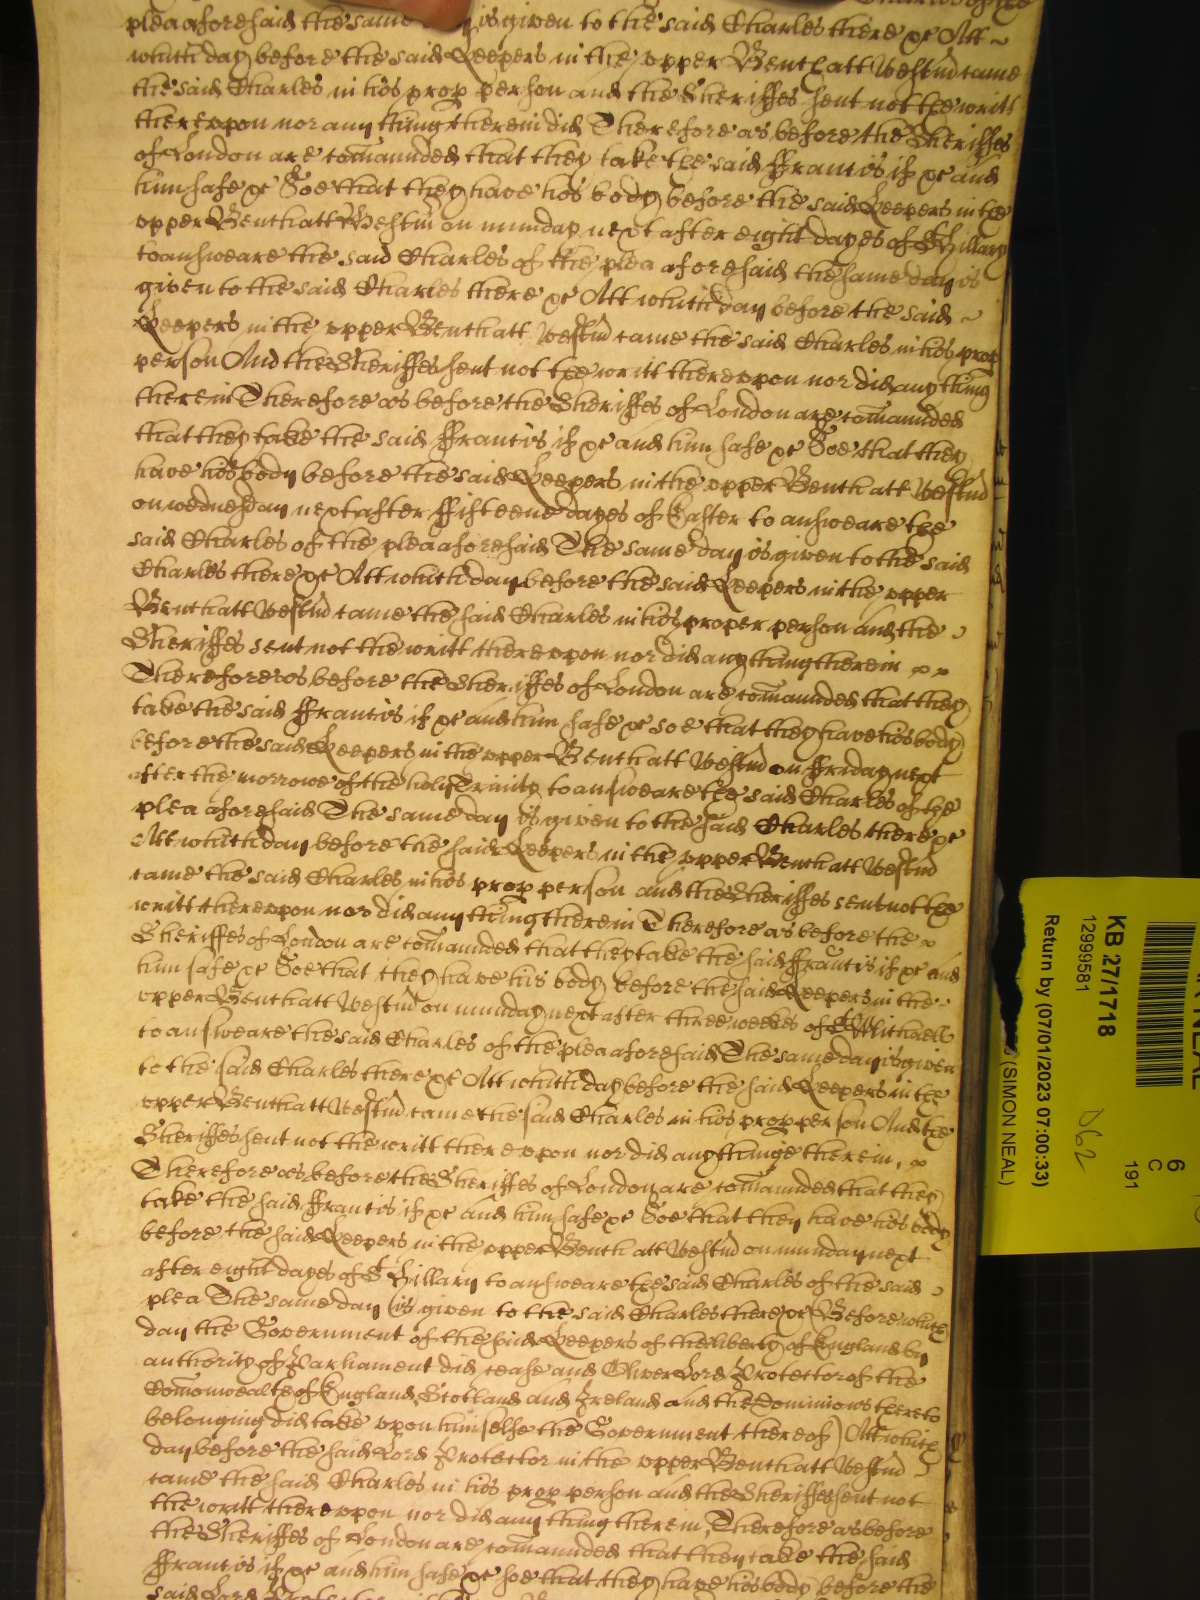 plea aforesaid the same day is given to the said Charles there &c Att
which day before the said Keepers in the upper Bench att Westm came
the said Charles in his prop person and the Sheriffes sent not the writt
thereupon nor any thing therein did Therefore as before the Sheriffes
of London are comaunded that they take the said Ffrancis if &c and
him safe &c Soe that they have his body before the said Keepers in the
upper Bench att Westm on munday next after eight dayes of St Hillary
to answeare the said Charles of the plea aforesaid the same day is
given to the said Charles there &c Att which day before the said
Keepers in the upper Bench att Westm came the said Charles in his prop
person And the Sheriffes sent not the writt thereupon nor did any thing
therein Therefore as before the Sheriffes of London are comaunded
that they take the said Ffrancis if &c and him safe &c Soe that they
have his body before the said Keepers in the upper Bench att Westm
on wednesday next after Ffifteene dayes of Easter to answeare the
said Charles of the plea aforesaid The same day is given to the said
Charles there &c Att which day before the said Keepers in the upper
Bench att Westm came the said Charles in his proper person and the
Sheriffes sent not the writt thereupon nor did any thing therein
Therefore as before the Sheriffes of London are comaunded that they
take the said Ffrancis if &c and him safe &c soe that they have his body
before the said Keepers in the upper Bench att Westm on Ffriday next
after the morrowe of the holy Trinity to answeare the said Charles of the
plea aforesaid The same day is given to the said Charles there &c
Att which day before the said Keepers in the upper Bench att Westm
came the said Charles in his prop person and the Sheriffes sent not the
writt thereupon nor did any thing therein Therefore as before the
Sheriffes of London are comaunded that they take the said Ffrancis if &c and
him safe &c Soe that they have his body before the said Keepers in the
upper Bench att Westm on munday next after three weekes of St Michaell
to answeare the said Charles of the plea aforesaid The same day is given
to the said Charles there &c Att which day before the said Keepers in the
upper Bench att Westm came the said Charles in his prop person And the
Sheriffes sent not the writt thereupon nor did any thinge therein,
Therefore as before the Sheriffes of London are comaunded that they
take the said Ffrancis if &c and him safe &c Soe that they have his body
before the said Keepers in the upper Bench att Westm on munday next
after eight dayes of St Hillary to answeare the said Charles of the said
plea The same day is given to the said Charles there &c (Before which
day the Government of the said Keepers of the liberty of England by
authority of Parliament did cease and Oliver Lord Protector of the
Comonwealth of England, Scotland and Ireland and the Dominions thereto
belonging did take upon himselfe the Government thereof) Att which
day before the said Lord Protector in the upper Bench att Westm
came the said Charles in his prop person and the Sheriffes sent not
the writt thereupon nor did any thing therein, Therefore as before
the Sheriffes of London are comaunded that they take the said
Ffrancis if &c and him safe &c soe that they have his body before the
said Lord
KB 27/1718
12999581
Return by (07/01/2023 07:00:33)
(SIMON NEAL)
D62
6
C
191